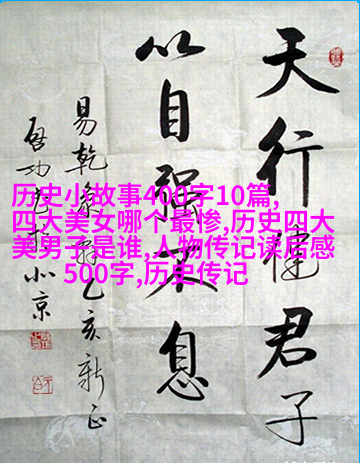 天行健君子
以自強不息
易乾象辭乙亥新正
启功书於北京
历史小故事400字10篇,
四大美女哪个最惨,历史四大
美男子是谁,人物传记读后感
500字,历史传记